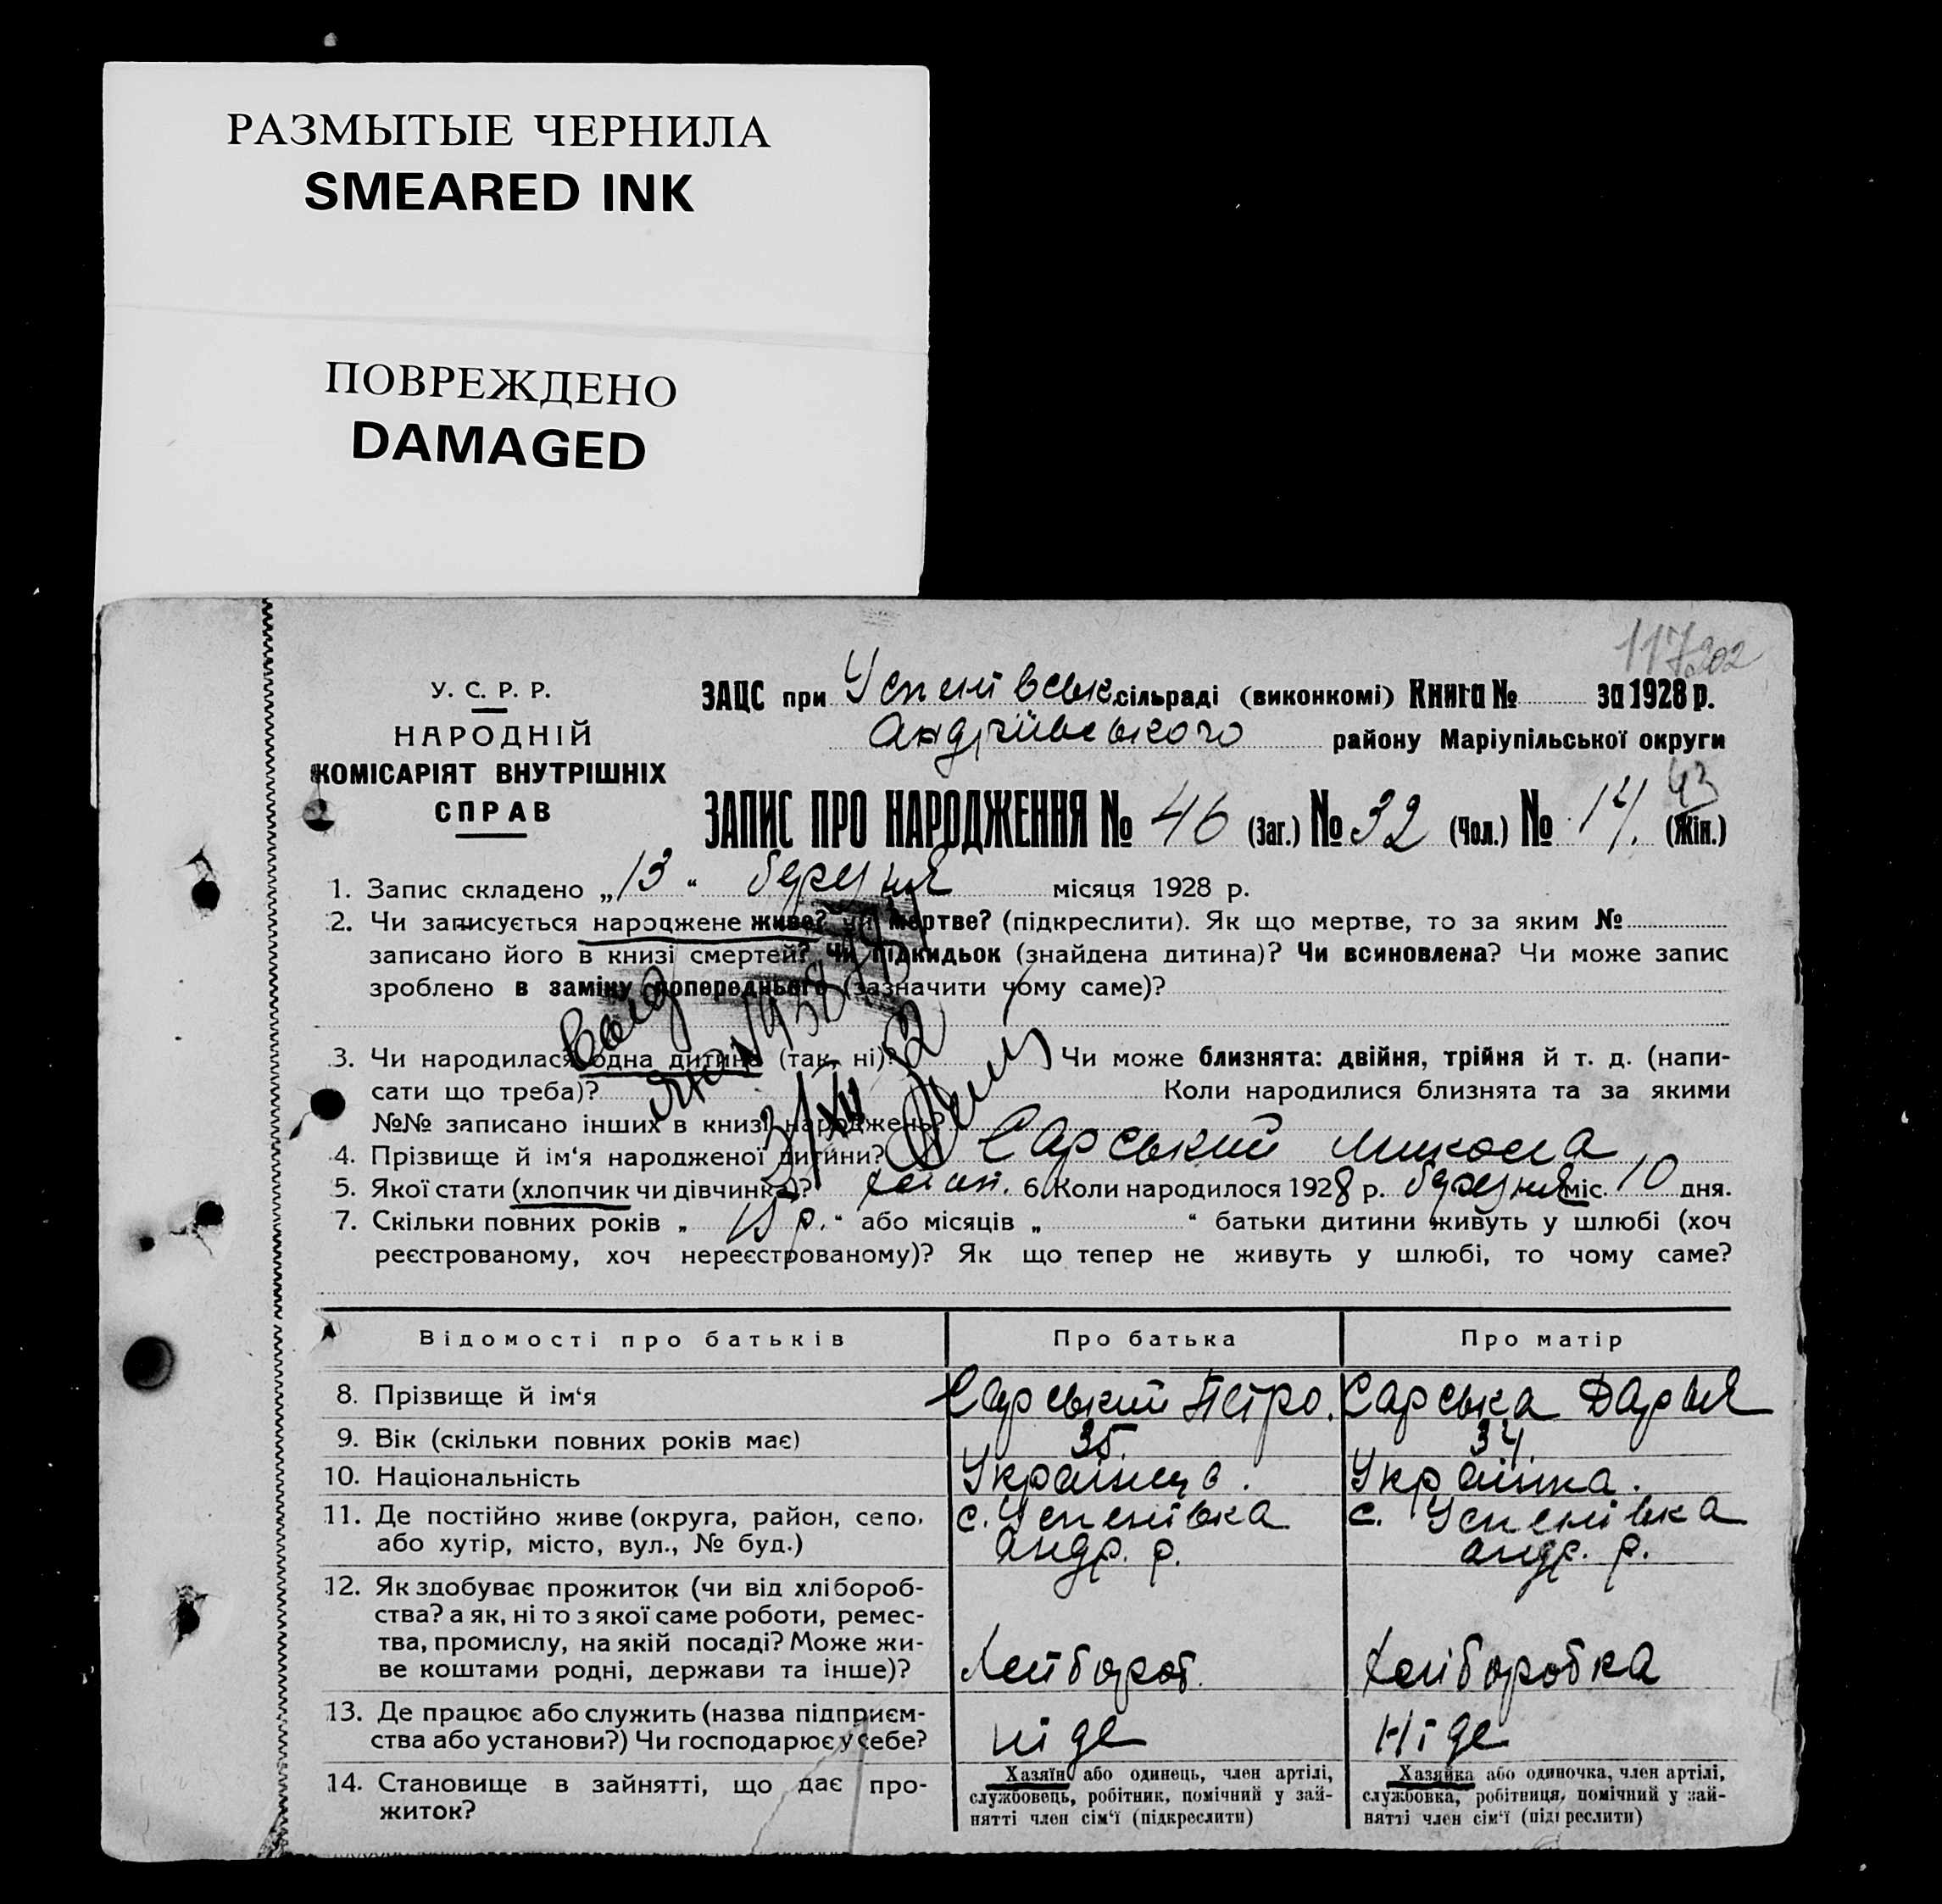 РАЗМЫТЫЕ ЧЕРНИЛА
SMEARED INK
ПОВРЕЖДЕНО
DAMAGED
117 202
У. С. Р. Р.
НАРОДНІЙ
КОМІСАРІЯТ ВНУТРІШНІХ
СПРАВ
ЗАЦС при Успенівськ. сільраді (виконкомі) Книга № за 1928 р.
Андріївського району Маріупільської округи
43
ЗАПИС ПРО НАРОДЖЕННЯ № 46 (Заг.) № 32 (Чол.) № 14. (Жін.)
1. Запис складено „13“ березня місяця 1928 р.
2. Чи записується народжене живе? чи мертве? (підкреслити). Як що мертве, то за яким №
записано його в книзі смертей? Чи підкидьок (знайдена дитина)? Чи всиновлена? Чи може запис
зроблено в заміну попереднього (зазначити чому саме)?
3. Чи народилася одна дитина (так, ні)? Чи може близнята: двійня, трійня й т. д. (напи-
сати що треба)? Коли народилися близнята та за якими
№№ записано інших в книзі народжень?
4. Прізвище й ім‘я народженої дитини? Сарський Микола
5. Якої стати (хлопчик чи дівчинка)? хлоп. 6. Коли народилося 1928 р. березня міс. 10 дня.
7. Скільки повних років „ 15 р. “ або місяців „ “ батьки дитини живуть у шлюбі (хоч
реєстрованому, хоч нереєстрованому)? Як що тепер не живуть у шлюбі, то чому саме?
Відомості про батьків Про батька Про матір
8. Прізвище й ім‘я Сарський Петро. Сарська Дарья
9. Вік (скільки повних років має) 35. 34.
10. Національність Українец. Українка.
11. Де постійно живе (округа, район, село, с. Успенівка с. Успенівка
або хутір, місто, вул., № буд.) андр. р. андр. р.
12. Як здобуває прожиток (чи від хлібороб-
ства? а як, ні то з якої саме роботи, ремес-
тва, промислу, на якій посаді? Може жи-
ве коштами родні, держави та інше)? Хлібороб. Хліборобка
13. Де працює або служить (назва підприєм-
ства або установи?) Чи господарює у себе? Ніде Ніде
14. Становище в зайнятті, що дає про-
житок?
Хазяїн або одинець, член артілі,
службовець, робітник, помічний у зай-
нятті член сім‘ї (підкреслити)
Хазяйка або одиночка, член артілі,
службовка, робітниця, помічний у зай-
нятті член сім‘ї (підкреслити)